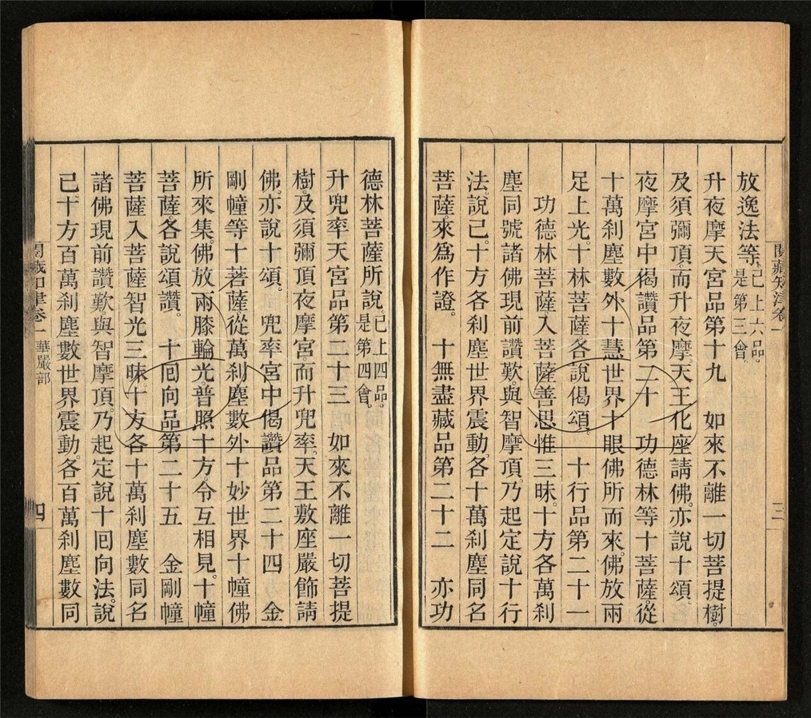 閱藏知津卷一
三
放逸法等。已上六品。是第三會。
升夜摩天宮品第十九　如來不離一切菩提樹。
及須彌頂而升夜摩天王化座請佛。亦說十頌。
夜摩宮中偈讚品第二十　功德林等十菩薩從
十萬剎塵數外十慧世界十眼佛所而來。佛放兩
足上光。十林菩薩各說偈頌。　十行品第二十一
功德林菩薩入菩薩善思惟三昧。十方各萬剎
塵同號諸佛現前讚歎。與智摩頂。乃起定說十行
法說已。十方各剎塵世界震動各十萬剎塵同名
菩薩來爲作證。　十無盡藏品第二十二　亦功
德林菩薩所說已上四品。是第四會。
升兜率天宮品第二十三　如來不離一切菩提
樹。及須彌頂夜摩宮而升兜率。天王敷座嚴飾請
佛。亦說十頌。　兜率宮中偈讚品第二十四　金
剛幢等十菩薩從萬剎塵數外十妙世界十幢佛
所來集。佛放兩膝輪光。普照十方令互相見。十幢
菩薩。各說頌讚。　十回向品第二十五　金剛幢
菩薩入菩薩智光三昧。十方各十萬剎塵數同名
諸佛現前讚歎與智摩頂。乃起定說十回向法。說
已。十方百萬剎塵數世界震動。各百萬剎塵數同
閱藏知津卷一　華嚴部
四